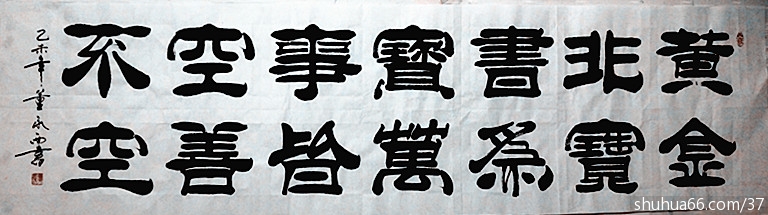 黄金
非寶
書為
寶萬
事皆
空善
不空
乙未年董永西書
shuhua66.com/37